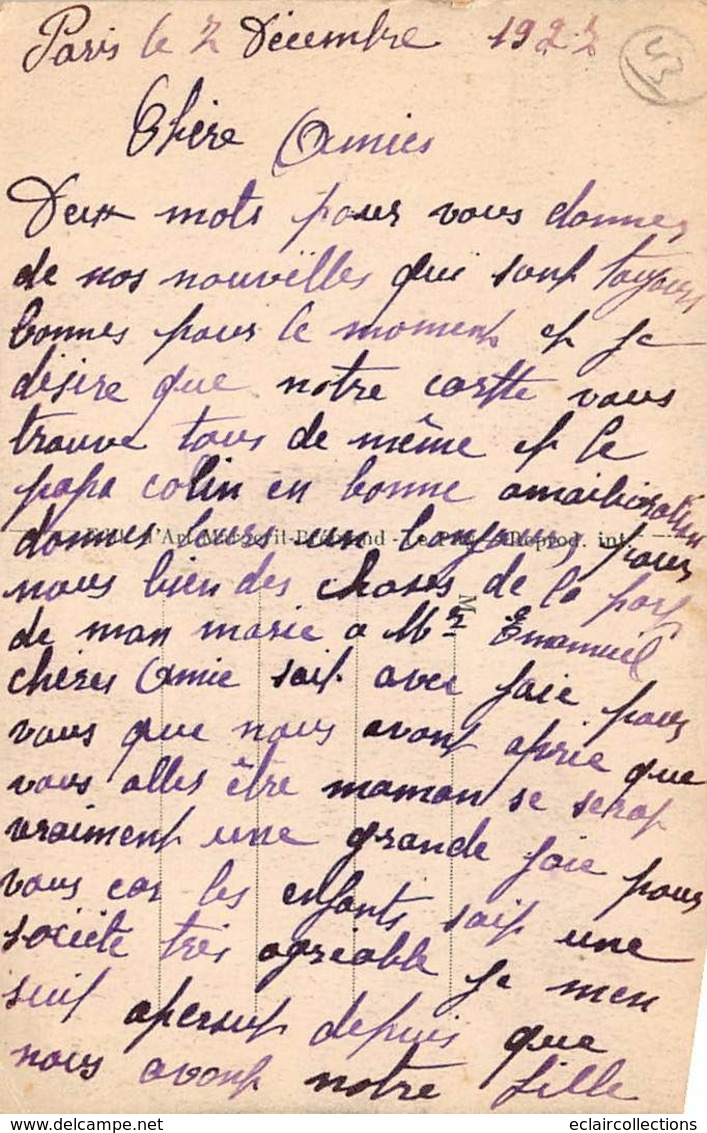 Paris le 2 Décembre 1922
53
Chère Amies
Deux mots pour vous donner
de nos nouvelles qui sont toujours
bonnes pour le moment et je
désire que notre cartte vous
trouve tous de même et le
papa colin en bonne
donner leurs un bonjour pour
nous bien des choses de la part
de mon marie a Mr Emanuel
chères Amie sait avec joie pour
vous que nous avont aprie que
vous alles être maman se serat
vraiment une grande joie pour
vous car les enfants sait une
société très agriable je men
suit apersut depuis que
nous avont notre fille
Edit. d'Art Margerit-Brémond - Le Puy - Reprod. int.
M
eclaircollections